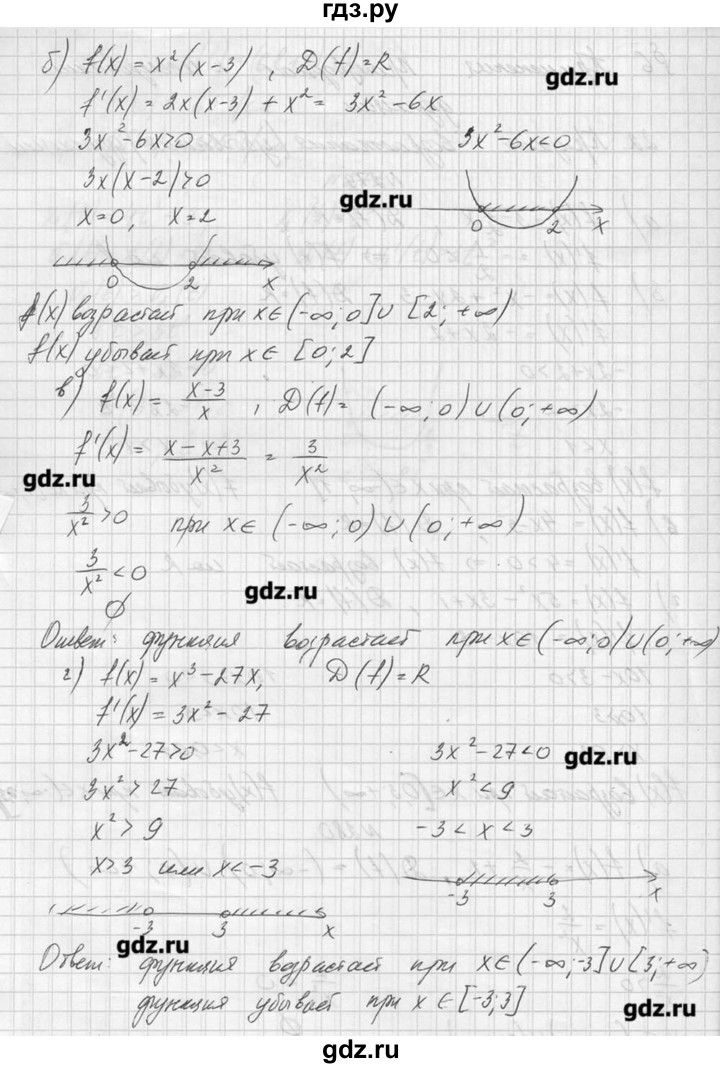 гдз.ру
б) f(x) = x²(x-3) , D(f)=R
gdz.ru
f'(x) = 2x(x-3) + x² = 3x²-6x
3x²-6x>0 3x²-6x<0
3x(x-2)>0
gdz.ru
x=0, x=2
0 2 x
0 2 x
f(x) возрастает при x∈(-∞;0]∪[2;+∞)
f(x) убывает при x∈[0;2]
в) f(x) = (x-3)/x , D(f)= (-∞;0)∪(0;+∞)
f'(x) = (x-x+3)/x² = 3/x²
gdz.ru
3/x² >0 при x∈(-∞;0)∪(0;+∞)
3/x² <0
gdz.ru
∅
Ответ: функция возрастает при x∈(-∞;0)∪(0;+∞)
г) f(x) = x³-27x, D(f)=R
f'(x) = 3x²-27
3x²-27>0 3x²-27<0
gdz.ru
3x²>27 x²<9
x²>9 -3<x<3
x>3 или x<-3
-3 3 x
-3 3 x
gdz.ru
Ответ: функция возрастает при x∈(-∞;-3]∪[3;+∞)
функция убывает при x∈[-3;3]
gdz.ru
gdz.ru